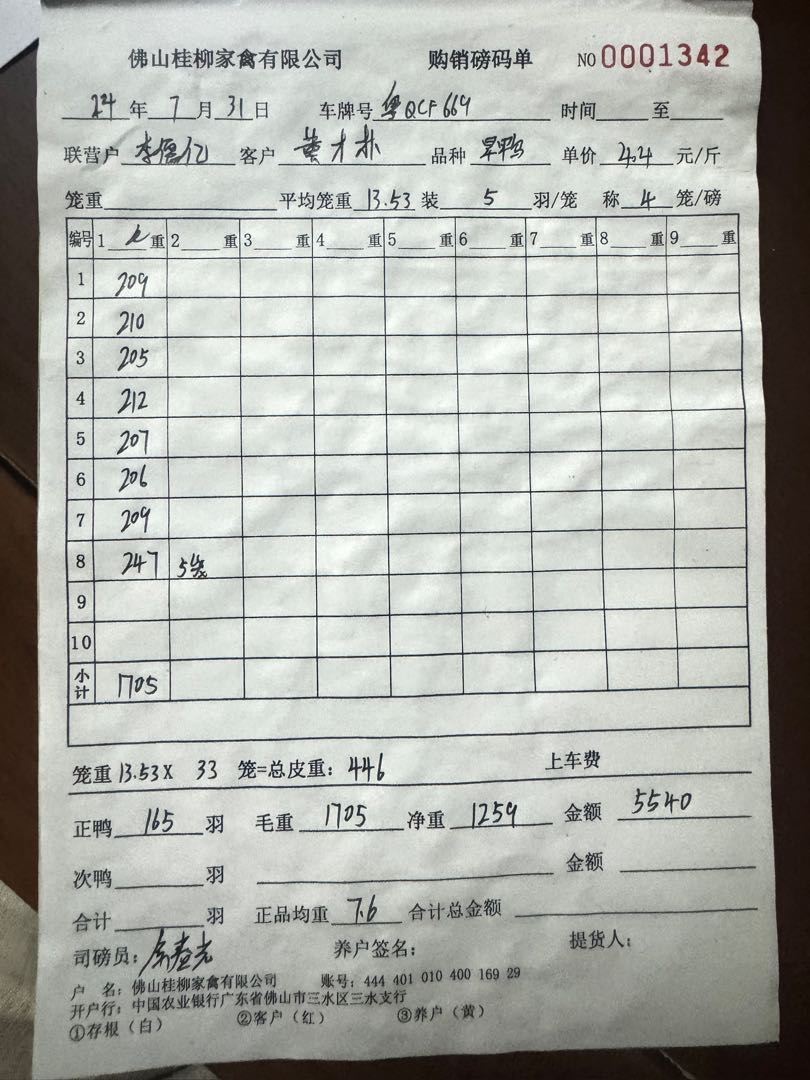 佛山桂柳家禽有限公司 购销磅码单 NO 0001342
24 年 7 月 31 日 车牌号 粤QCF669 时间 至
联营户 李儒亿 客户 黄才朴 品种 旱鸭 单价 4.4 元/斤
笼重 平均笼重 13.53 装 5 羽/笼 称 4 笼/磅
编号 1 重 2 重 3 重 4 重 5 重 6 重 7 重 8 重 9 重
1 209
2 210
3 205
4 212
5 207
6 206
7 209
8 247 5笼
9
10
小计 1705
笼重 13.53 X 33 笼=总皮重: 446 上车费
正鸭 165 羽 毛重 1705 净重 1259 金额 5540
次鸭 羽 金额
合计 羽 正品均重 7.6 合计总金额
司磅员: 养户签名: 提货人:
户 名: 佛山桂柳家禽有限公司 账号: 444 401 010 400 169 29
开户行: 中国农业银行广东省佛山市三水区三水支行
①存根（白） ②客户（红） ③养户（黄）